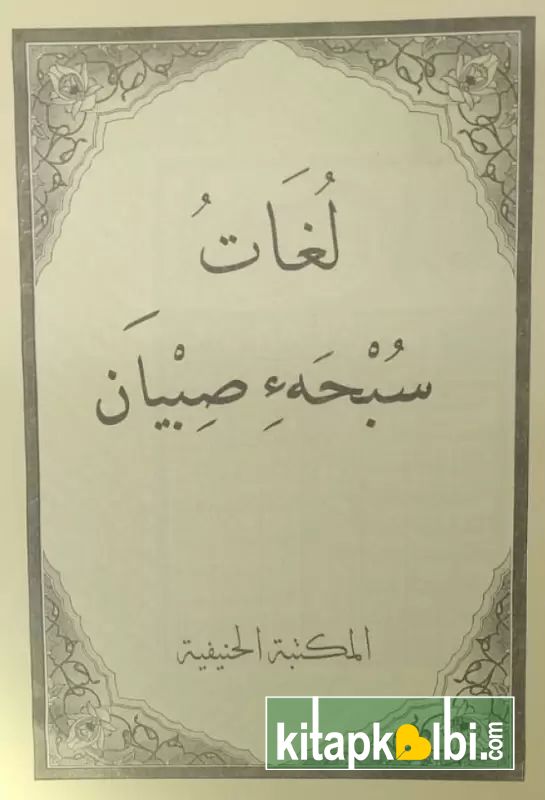 لُغَاتُ
سُبْحَهءِ صِبْيَانَ
المكتبة الحنيفية
kitapkalbi.com